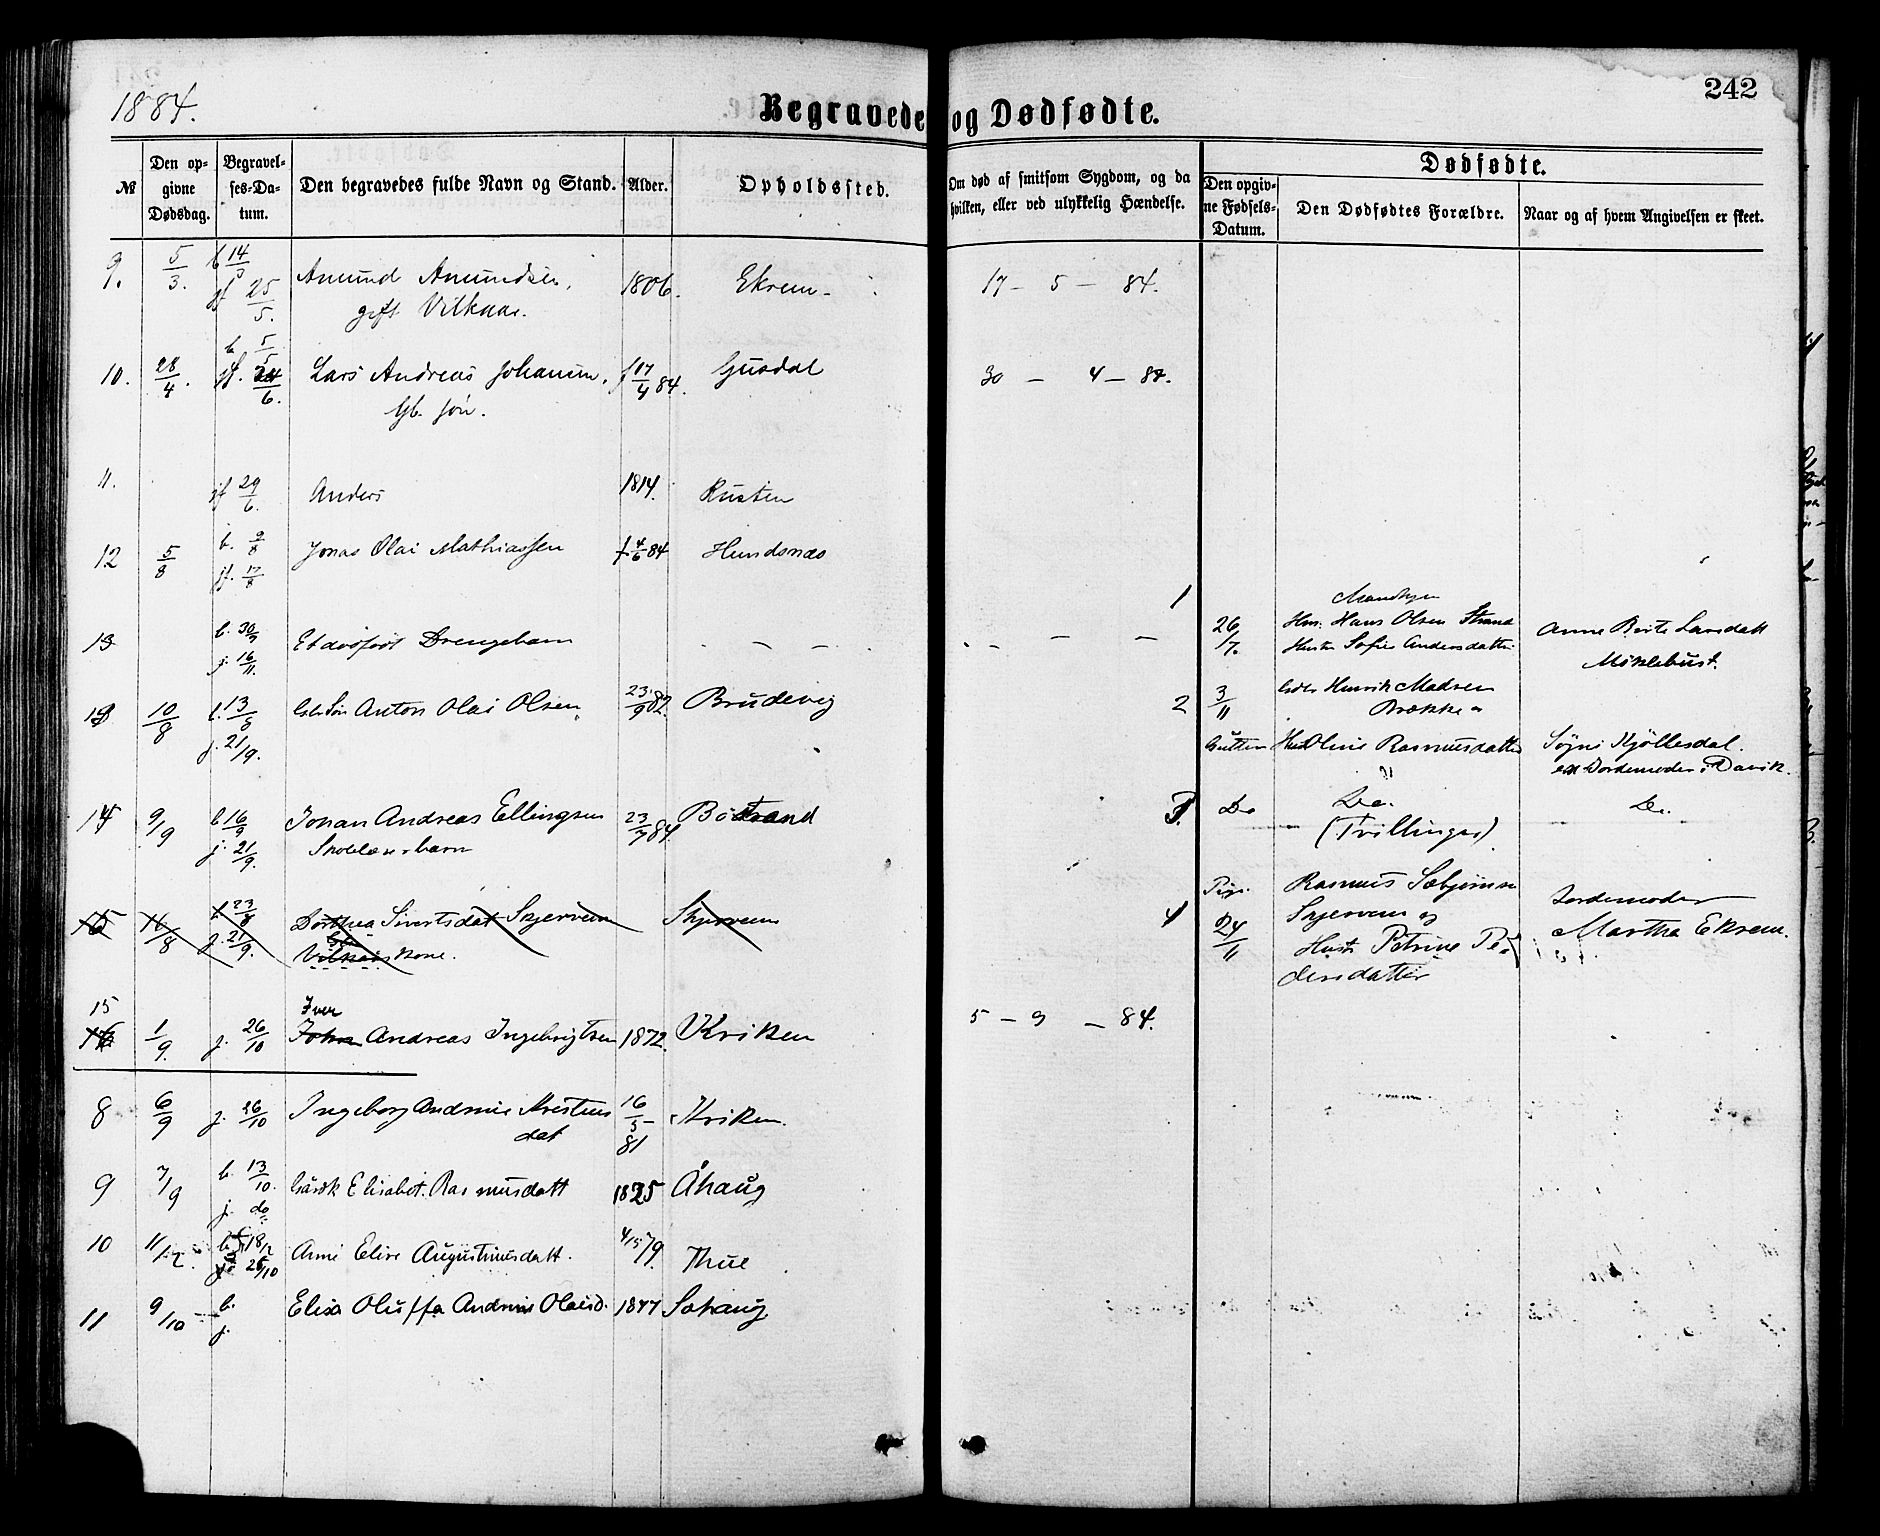 1884.
Begravede og Dødfødte.
242
№
Den opgivne Dødsdag.
Begravelses-Datum.
Den begravedes fulde Navn og Stand.
Alder.
Opholdssted.
Om død af smitsom Sygdom, og da hvilken, eller ved ulykkelig Hændelse.
Dødfødte.
Den opgivne Fødsels-Datum.
Den Dødfødtes Forældre.
Naar og af hvem Angivelsen er skeet.
9. 5/3. b 14/3 jf 25/5. Amund Amundsen, 1806. Ekrem 17 - 5 - 84.
gift Vilkaar.
10. 28/4. b. 5/5 jf. 24/6. Lars Andreas Johannn. f 17/4 84. Gusdal 30 - 4 - 84.
Gb. søn.
11. jf 29/6. Anders 1814. Rusten
12 5/8 b. 9/8 jf. 17/8 Jonas Olai Mathiassen f. 4/6 84 Hundsnes
13 b. 30/9 j. 16/11. Et dødfødt Drengebarn
13 10/8 b. 13/8 j. 21/9. Søn Anton Olai Olsen 23/9 82. Brudevig
14 9/9 b 16/9 j. 21/9. Johan Andreas Ellingsen 23/7 84. Böstrand
Skolelærerbarn
15 16/8 b 23/8 j. 21/9. Dorthea Sivertsdat Skjerveim Skjerveim
Vilkaarskone.
15 1/9. j. 26/10 Iver
John Andreas Ingebrigtsen 1872. Kviken 5 - 9 - 84.
8 6/9 j. 26/10 Ingeborg Andrine Krestens 16/5 81 Kviken.
dat
9 7/9 b. 13/10. j. do Elisabet Rasmusdatt 1825 Åhaug
10 11/12. b. 18/2 j. 26/10 Anne Elise Augustinusdatt. 4/5 79. Thue
11 9/10 b. j. Elisa Oluffa Andrine Olaisd. 1877 Solhaug
1 Mandkjøn
26/7. Hans Olsen Strand Anne Berte Larsdatt
Hustru Sofie Andersdatter Möklebust.
2 3/11 Henrik Madsen
Brække
Gutten Oline Rasmusdatter Søgni Kjöllesdal.
Jordemoder i Davik.
3. Do Do. Do.
(Tvillinger)
4 Pige. 24/11 Rasmus Sæbjörnsen Jordemoder
Skjerveim og Martha Ekrem.
Hustr Petrine Pe-
dersdatter